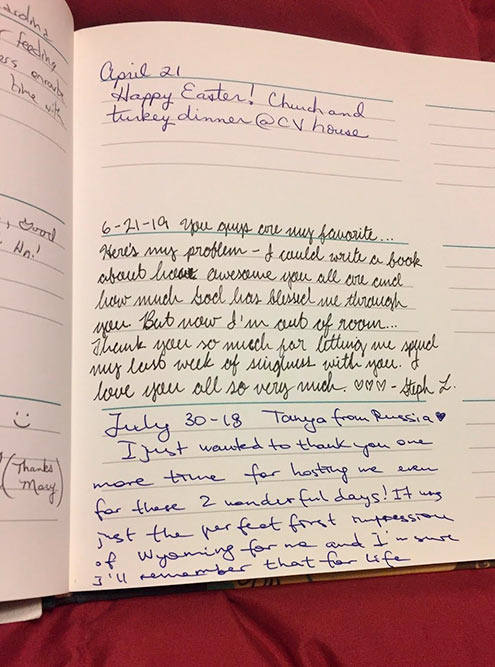 feeding
time with
Good
(Thanks
Mary)
April 21
Happy Easter! Church and
turkey dinner @ CV house
6-21-19 You guys are my favorite...
Here's my problem - I could write a book
about how awesome you all are and
how much God has blessed me through
you But now I'm out of room...
Thank you so much for letting me spend
my last week of singleness with you. I
love you all so very much. ♡♡♡ - Steph L.
July 30-18 Tanya from Russia ♥
I just wanted to thank you one
more time for hosting me even
for these 2 wonderful days! It was
just the perfect first impression
of Wyoming for me and I'm sure
I'll remember that for life